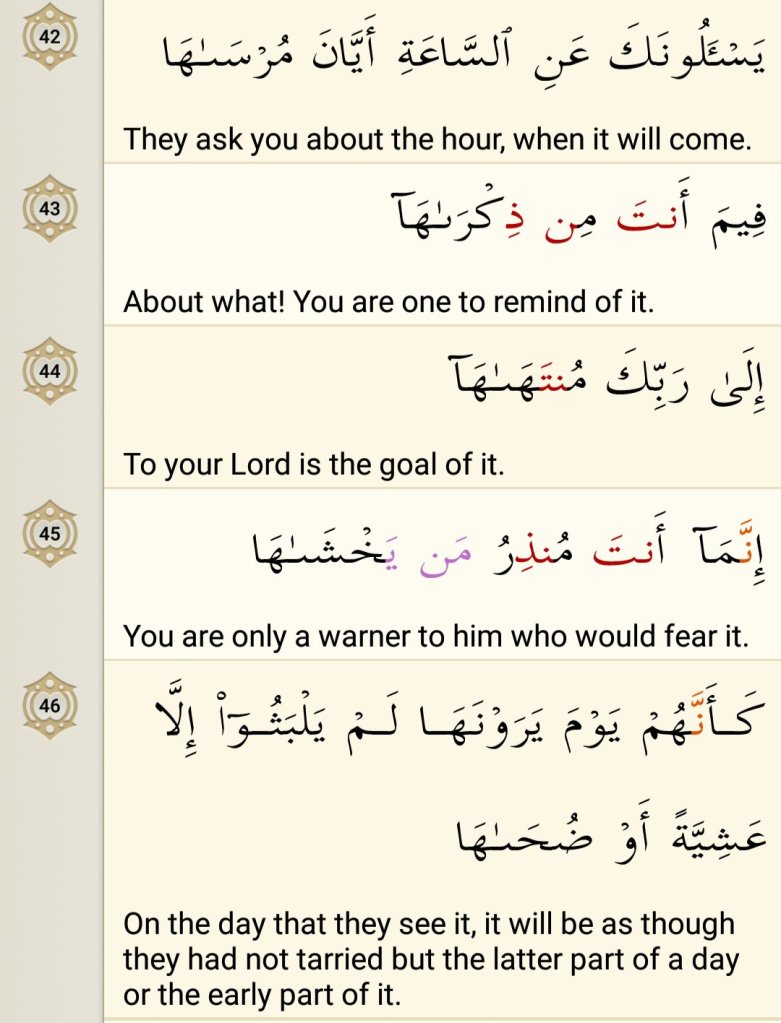 42
يَسْـَٔلُونَكَ عَنِ ٱلسَّاعَةِ أَيَّانَ مُرْسَىٰهَا
They ask you about the hour, when it will come.
43
فِيمَ أَنتَ مِن ذِكْرَىٰهَآ
About what! You are one to remind of it.
44
إِلَىٰ رَبِّكَ مُنتَهَىٰهَآ
To your Lord is the goal of it.
45
إِنَّمَآ أَنتَ مُنذِرُ مَن يَخْشَىٰهَا
You are only a warner to him who would fear it.
46
كَأَنَّهُمْ يَوْمَ يَرَوْنَهَا لَمْ يَلْبَثُوٓا۟ إِلَّا
عَشِيَّةً أَوْ ضُحَىٰهَا
On the day that they see it, it will be as though
they had not tarried but the latter part of a day
or the early part of it.